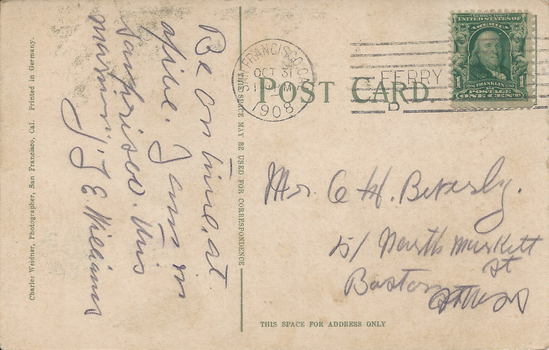 Be on time. at
ofive. I am in
Sanfrisco. this
morning. J E Williams
Charles Weidner, Photographer, San Francisco, Cal. Printed in Germany.
THIS SPACE MAY BE USED FOR CORRESPONDENCE
POST CARD.
FRANCISCO, CAL.
OCT 31
1908
FERRY
UNITED STATES OF
AMERICA
1 FRANKLIN 1
POSTAGE
ONE CENT
Mr. C H.
51 North Muskett
St
Boston
Mass
THIS SPACE FOR ADDRESS ONLY